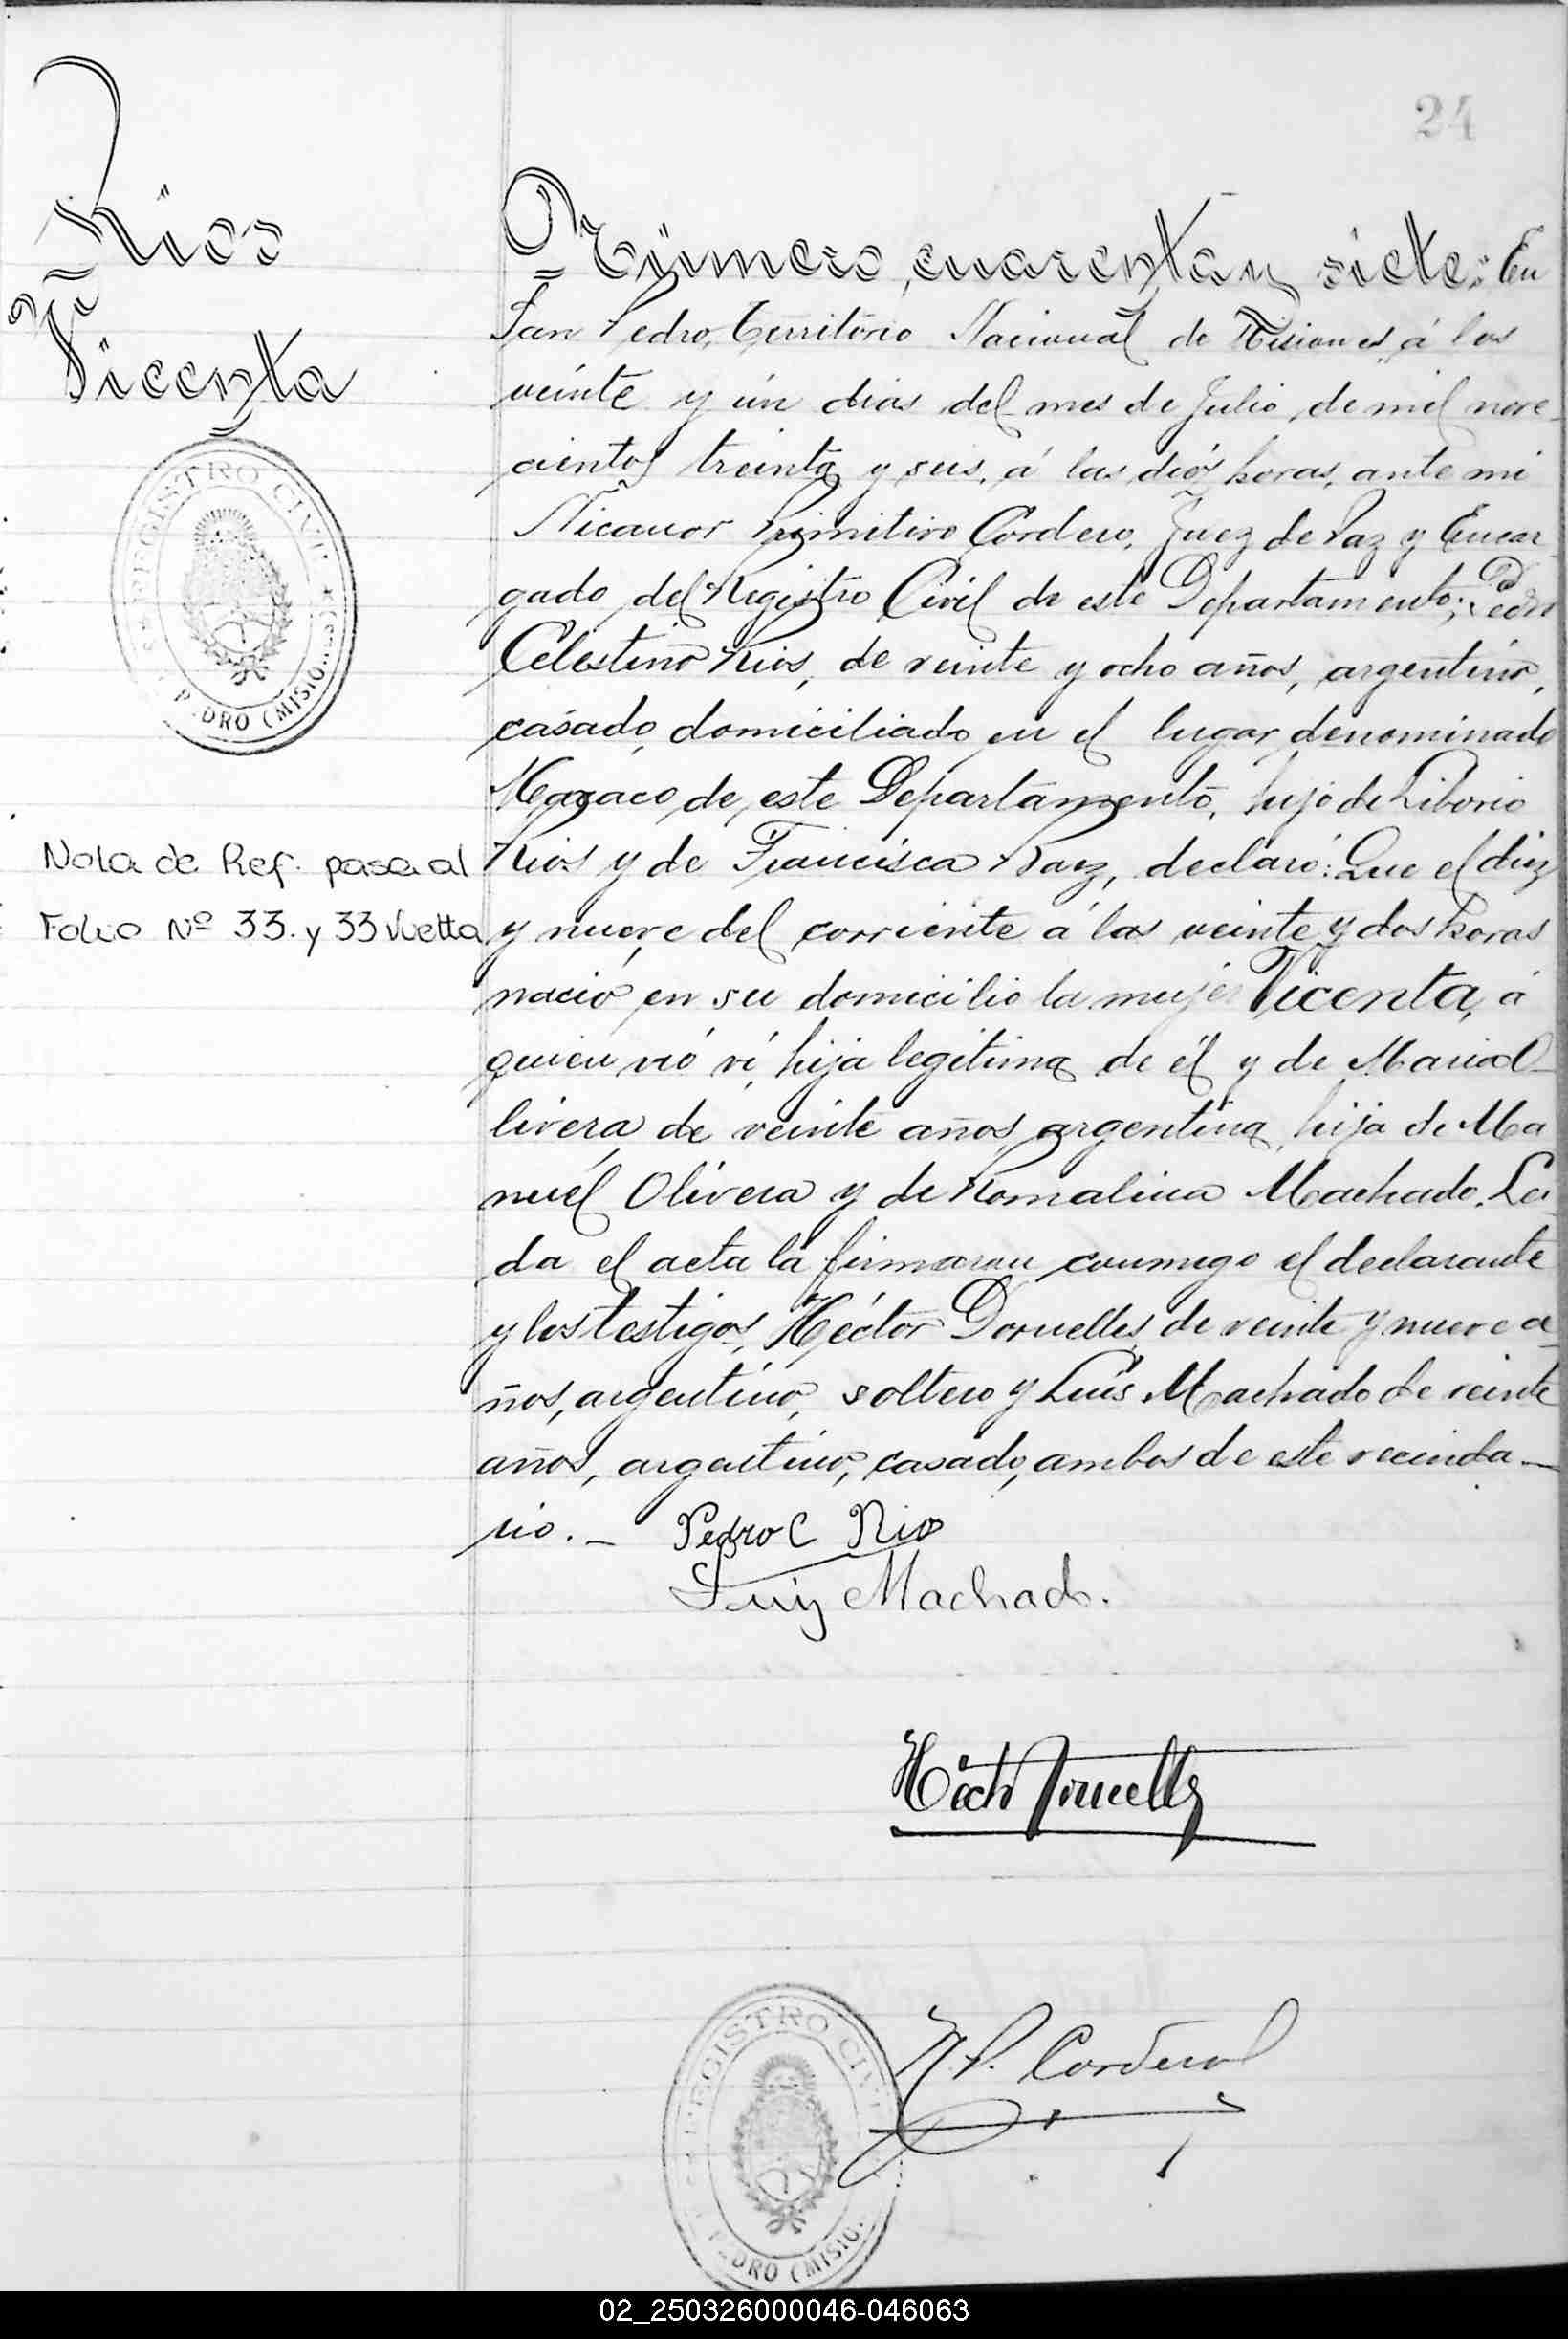 24
Rios
Vicenta
REGISTRO CIVIL
P.DRO (MISIO.
Nota de Ref. pasa al
Folio Nº 33. y 33 Vuelta
Número cuarenta y siete: En
San Pedro, Territorio Nacional de Misiones, á los
veinte y ún dias del mes de Julio de mil nove-
cientos treinta y seis, á las diós horas, ante mi
Nicanor Primitivo Cordero, Juez de Paz y Encar-
gado del Registro Civil de este Departamento; Pedro
Celestino Rios, de veinte y ocho años, argentino,
casado, domiciliado en el lugar denominado
de este Departamento, hijo de Liborio
Rios y de Francisca Paez, declaró: Que el diez
y nueve del corriente á las veinte y dos horas
nació en su domicilio la mujer Vicenta, á
quien vió ví, hija legitima de él y de Maria O-
livera de veinte años, argentina, hija de Ma
nuel Olivera y de Romalina Machado. Lei-
da el acta la firmaron conmigo el declarante
y los testigos, Héctor Dornelles, de veinte y nueve a-
ños, argentino, soltero y Luis Machado de veinte
años, argentino, casado, ambos de este vecinda-
rio. _ Pedro C Rios
Luiz Machado.
Héctor Dornelles
N. P. Cordero
REGISTRO CIVIL
P.DRO (MISIO.
02_250326000046-046063